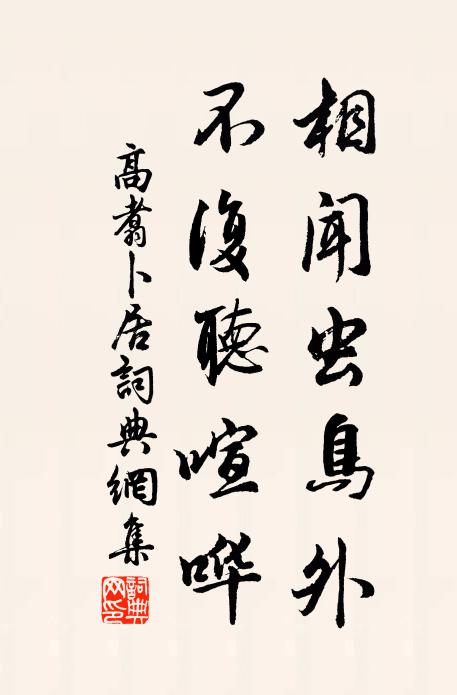 相闻虫鳥外
不復聽喧哗
高翥卜居詞典網集
詞典网印